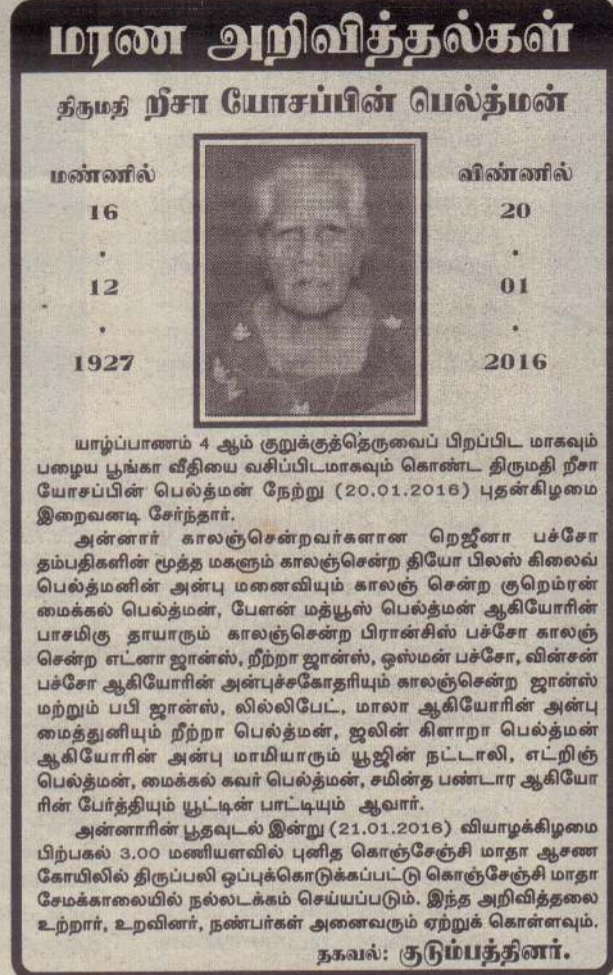 மரண அறிவித்தல்கள்
திருமதி றீசா யோசப்பின் பெல்த்மன்
மண்ணில்
16
.
12
.
1927
விண்ணில்
20
.
01
.
2016
யாழ்ப்பாணம் 4 ஆம் குறுக்குத்தெருவைப் பிறப்பிட மாகவும்
பழைய பூங்கா வீதியை வசிப்பிடமாகவும் கொண்ட திருமதி றீசா
யோசப்பின் பெல்த்மன் நேற்று (20.01.2016) புதன்கிழமை
இறைவனடி சேர்ந்தார்.
அன்னார் காலஞ்சென்றவர்களான றெஜீனா பச்சோ
தம்பதிகளின் மூத்த மகளும் காலஞ்சென்ற தியோ பிலஸ் கிலைவ்
பெல்த்மனின் அன்பு மனைவியும் காலஞ் சென்ற குறெம்ரன்
மைக்கல் பெல்த்மன், பேளன் மத்யூஸ் பெல்த்மன் ஆகியோரின்
பாசமிகு தாயாரும் காலஞ்சென்ற பிரான்சிஸ் பச்சோ காலஞ்
சென்ற எட்னா ஜான்ஸ், றீற்றா ஜான்ஸ், ஒஸ்மன் பச்சோ, வின்சன்
பச்சோ ஆகியோரின் அன்புச்சகோதரியும் காலஞ்சென்ற ஜான்ஸ்
மற்றும் பபி ஜான்ஸ், லில்லிபேட், மாலா ஆகியோரின் அன்பு
மைத்துனியும் றீற்றா பெல்த்மன், ஜலின் கிளாறா பெல்த்மன்
ஆகியோரின் அன்பு மாமியாரும் யூஜின் நட்டாலி, எட்றிஞ்
பெல்த்மன், மைக்கல் கவர் பெல்த்மன், சமின்த பண்டார ஆகியோ
ரின் பேர்த்தியும் யூட்டின் பாட்டியும் ஆவார்.
அன்னாரின் பூதவுடல் இன்று (21.01.2016) வியாழக்கிழமை
பிற்பகல் 3.00 மணியளவில் புனித கொஞ்சேஞ்சி மாதா ஆசண
கோயிலில் திருப்பலி ஒப்புக்கொடுக்கப்பட்டு கொஞ்சேஞ்சி மாதா
சேமக்காலையில் நல்லடக்கம் செய்யப்படும். இந்த அறிவித்தலை
உற்றார், உறவினர், நண்பர்கள் அனைவரும் ஏற்றுக் கொள்ளவும்.
தகவல்: குடும்பத்தினர்.